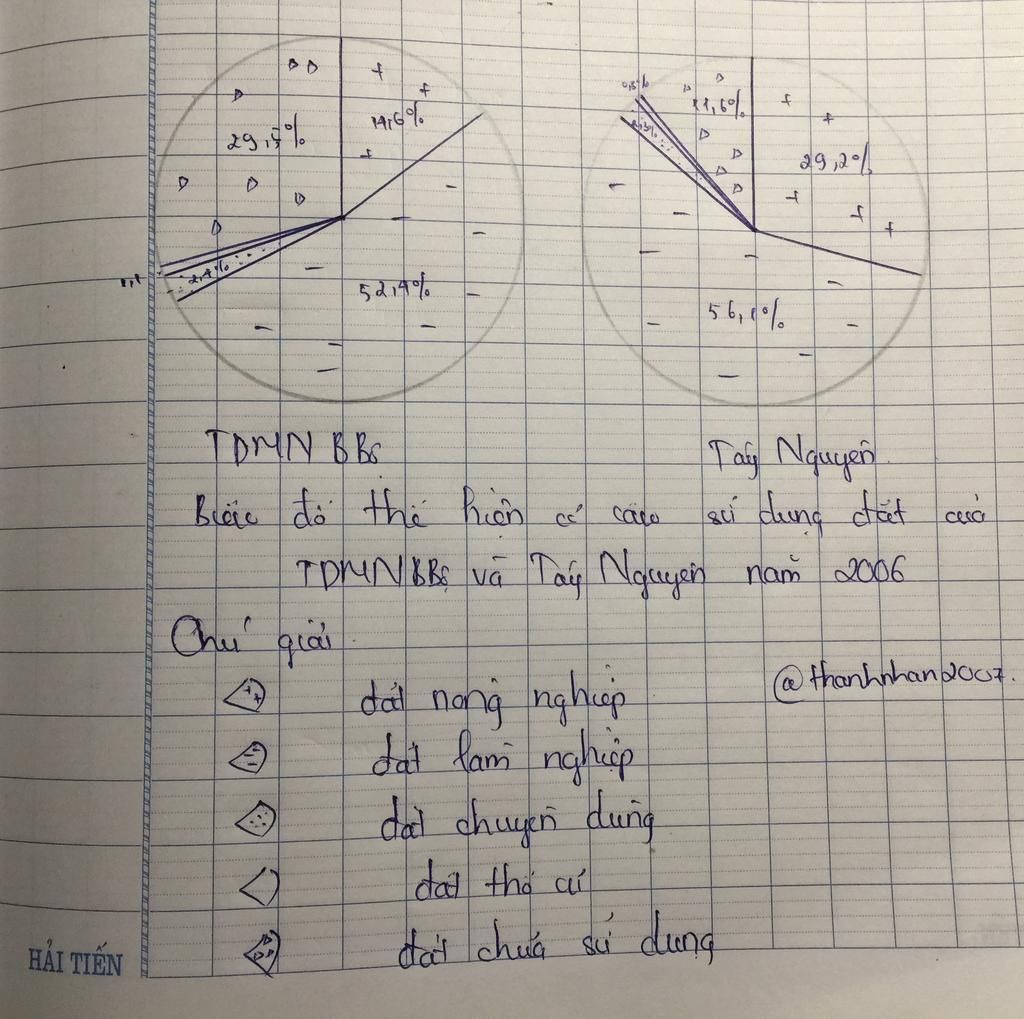 29,5% 14,6%
2,4%
1,1
52,4%
0,5%
11,6%
29,2%
56,1%
TDMN BBộ Tây Nguyên
Biểu đồ thể hiện cơ cấu sử dụng đất của
TDMN BBộ và Tây Nguyên năm 2006
Chú giải
@thanhnhan2007.
đất nông nghiệp
đất lâm nghiệp
đất chuyên dùng
đất thổ cư
đất chưa sử dụng
HẢI TIẾN